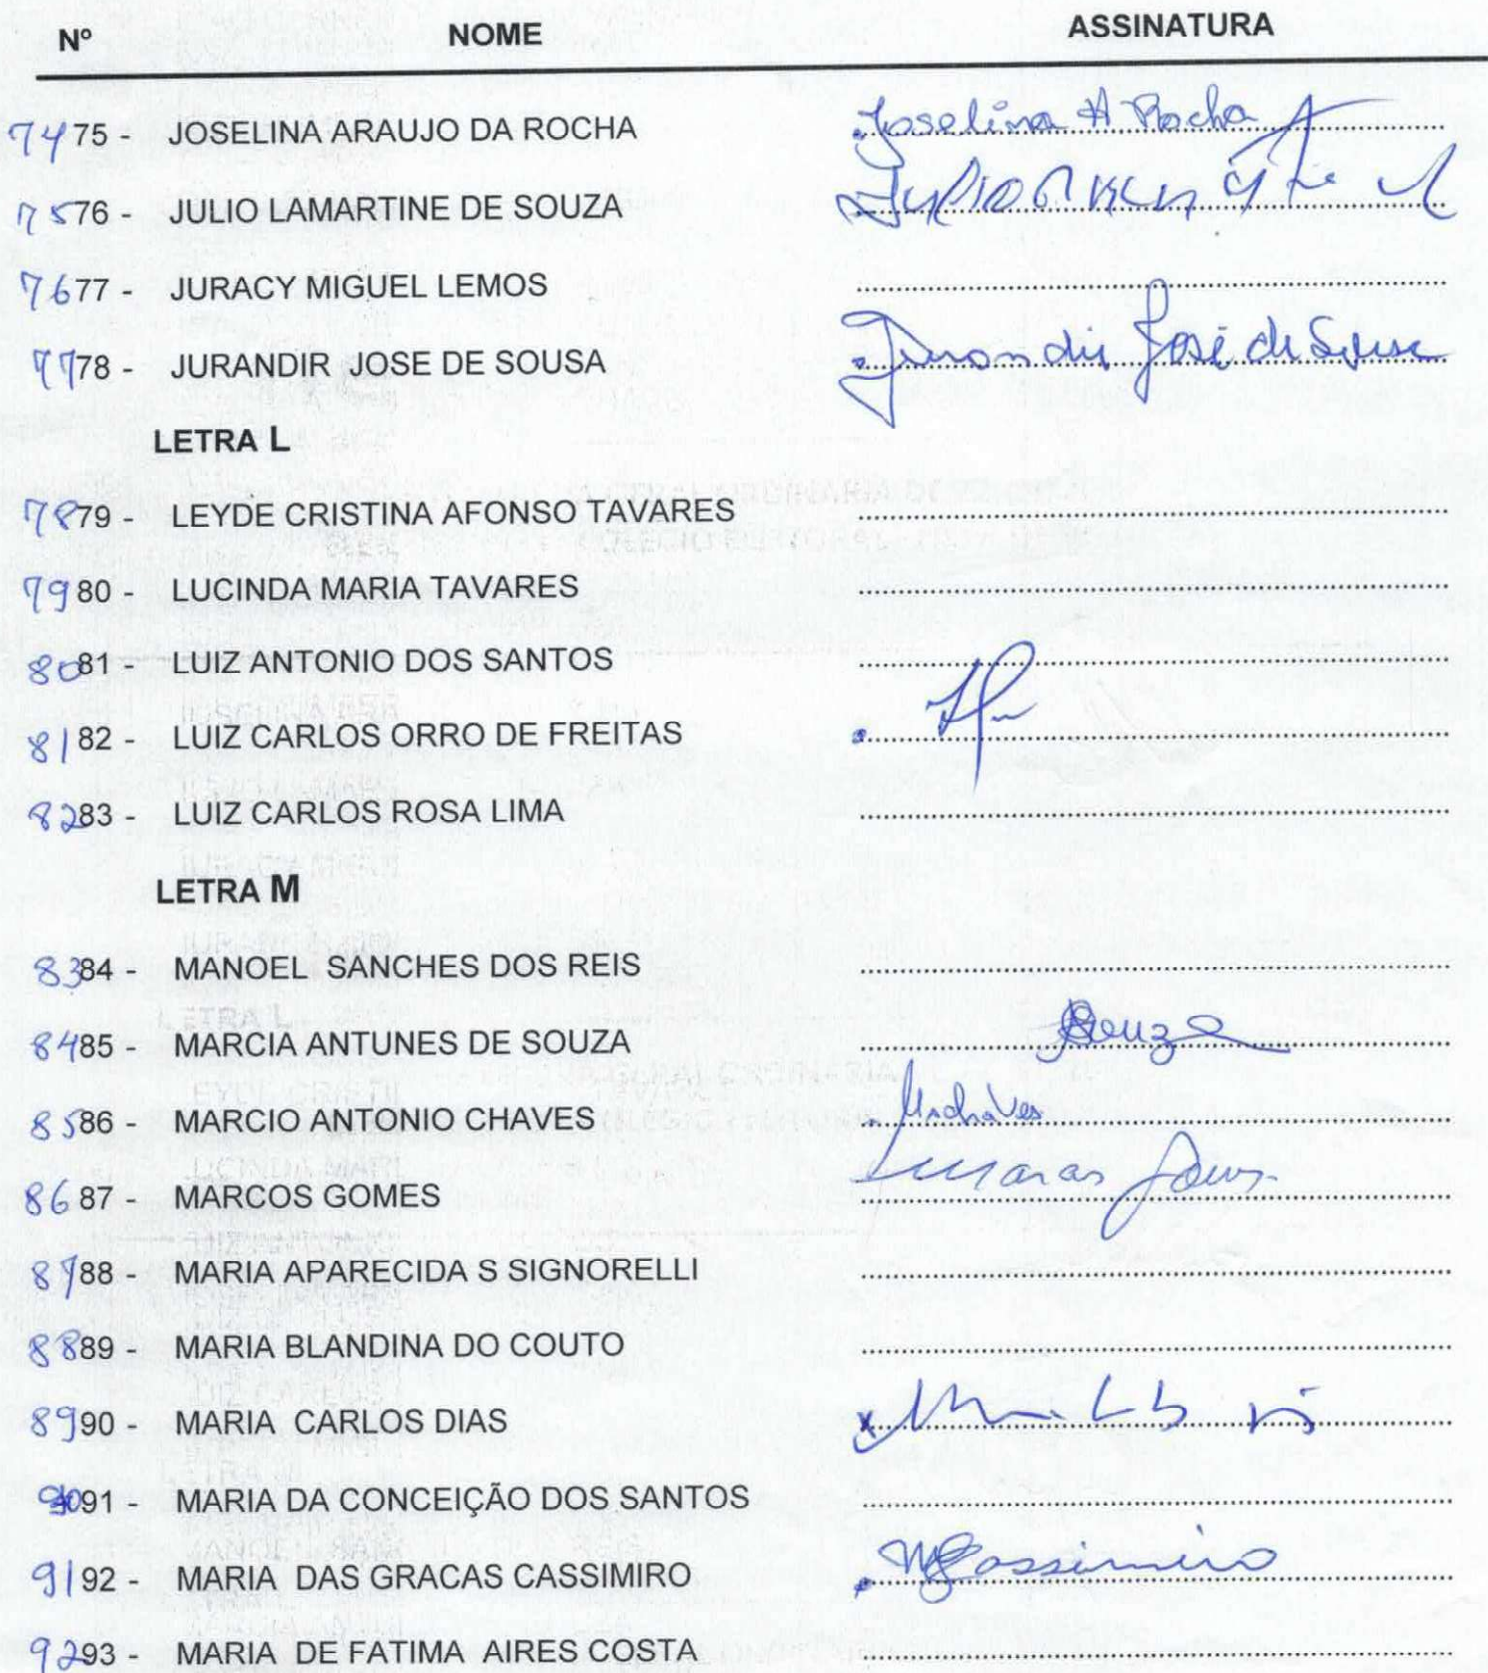 Nº NOME ASSINATURA
74 75 - JOSELINA ARAUJO DA ROCHA Joselina A Rocha
75 76 - JULIO LAMARTINE DE SOUZA
76 77 - JURACY MIGUEL LEMOS
77 78 - JURANDIR JOSE DE SOUSA Jurandir José de Sousa
LETRA L
78 79 - LEYDE CRISTINA AFONSO TAVARES
79 80 - LUCINDA MARIA TAVARES
80 81 - LUIZ ANTONIO DOS SANTOS
81 82 - LUIZ CARLOS ORRO DE FREITAS
82 83 - LUIZ CARLOS ROSA LIMA
LETRA M
83 84 - MANOEL SANCHES DOS REIS
84 85 - MARCIA ANTUNES DE SOUZA Souza
85 86 - MARCIO ANTONIO CHAVES
86 87 - MARCOS GOMES
87 88 - MARIA APARECIDA S SIGNORELLI
88 89 - MARIA BLANDINA DO COUTO
89 90 - MARIA CARLOS DIAS
90 91 - MARIA DA CONCEIÇÃO DOS SANTOS
91 92 - MARIA DAS GRACAS CASSIMIRO MGCassimiro
92 93 - MARIA DE FATIMA AIRES COSTA